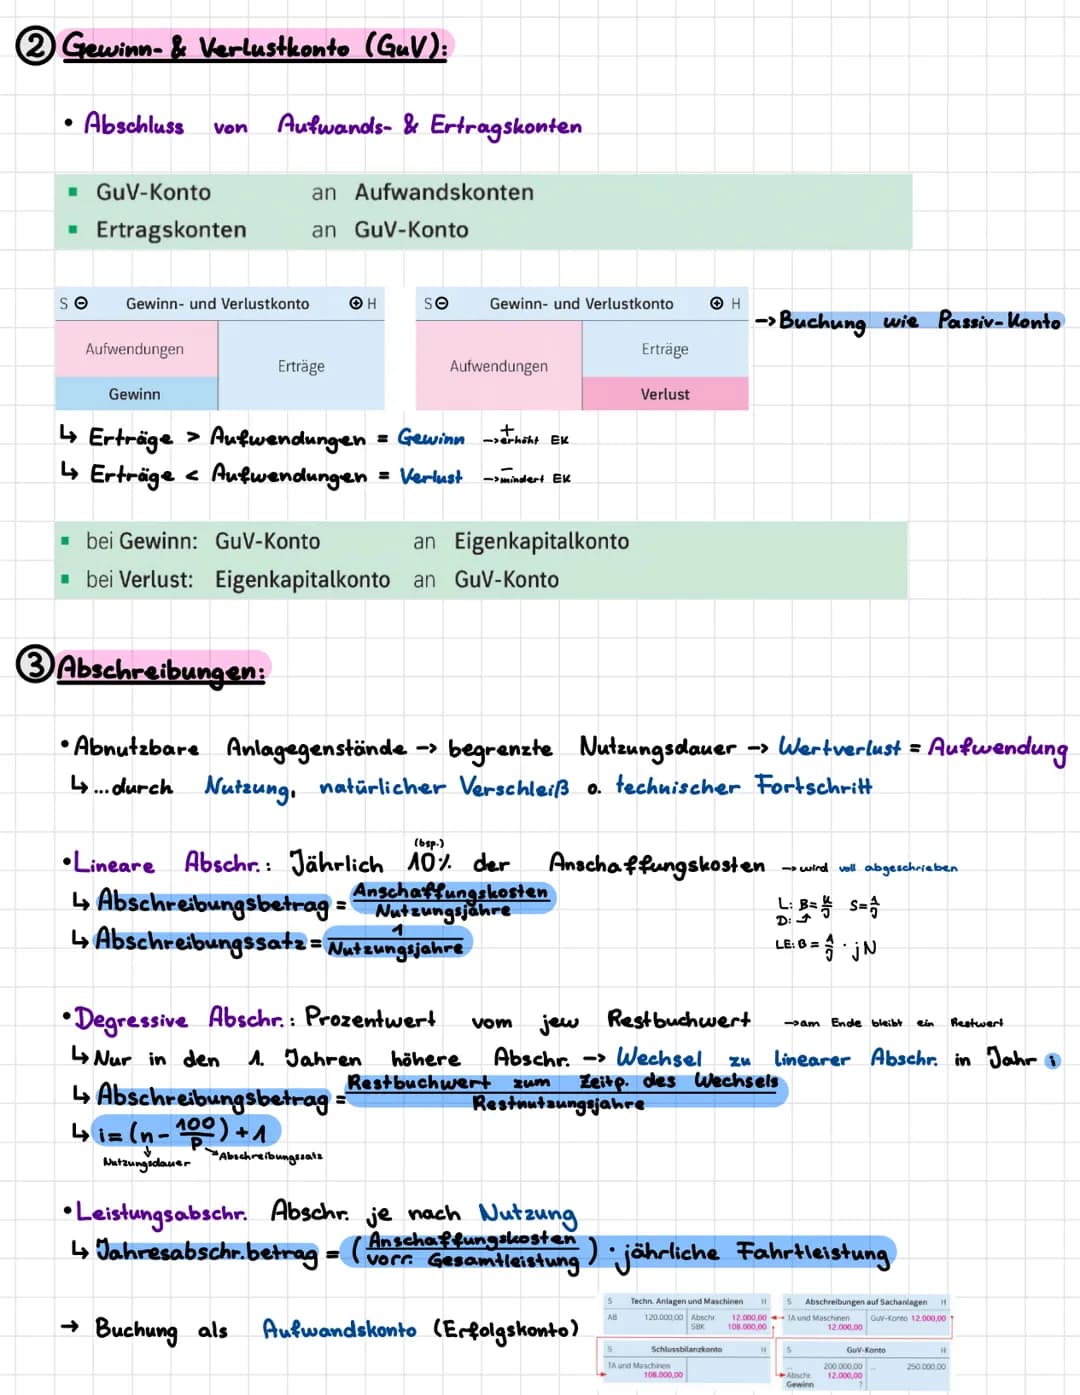 ② Gewinn- & Verlustkonto (GuV):
• Abschluss von Aufwands- & Ertragskonten
▪ GuV-Konto an Aufwandskonten
▪ Ertragskonten an GuV-Konto
S ⊖ Gewinn- und Verlustkonto ⊕ H
Aufwendungen
Erträge
Gewinn
S ⊖ Gewinn- und Verlustkonto ⊕ H
Aufwendungen
Erträge
Verlust
-> Buchung wie Passiv-Konto
↳ Erträge > Aufwendungen = Gewinn -> + erhöht EK
↳ Erträge < Aufwendungen = Verlust -> - mindert EK
▪ bei Gewinn: GuV-Konto an Eigenkapitalkonto
▪ bei Verlust: Eigenkapitalkonto an GuV-Konto
③ Abschreibungen:
• Abnutzbare Anlagegenstände -> begrenzte Nutzungsdauer -> Wertverlust = Aufwendung
↳ ...durch Nutzung, natürlicher Verschleiß o. technischer Fortschritt
(bsp.)
• Lineare Abschr.: Jährlich 10% der Anschaffungskosten -> wird voll abgeschrieben
↳ Abschreibungsbetrag = Anschaffungskosten / Nutzungsjahre
↳ Abschreibungssatz = 1 / Nutzungsjahre
L: B= K/J S= 1/J
D: ↑
LE: B = A/J · jN
• Degressive Abschr.: Prozentwert vom jew Restbuchwert -> am Ende bleibt ein Restwert
↳ Nur in den 1. Jahren höhere Abschr. -> Wechsel zu linearer Abschr. in Jahr i
↳ Abschreibungsbetrag = Restbuchwert zum Zeitp. des Wechsels / Restnutzungsjahre
↳ i = (n - 100/P) + 1
Nutzungsdauer Abschreibungssatz
• Leistungsabschr. Abschr. je nach Nutzung
↳ Jahresabschr.betrag = (Anschaffungskosten / vorr. Gesamtleistung) · jährliche Fahrtleistung
→ Buchung als Aufwandskonto (Erfolgskonto)
S Techn. Anlagen und Maschinen H
AB 120.000,00 Abschr. 12.000,00
SBK 108.000,00
S Abschreibungen auf Sachanlagen H
TA und Maschinen GuV-Konto 12.000,00
12.000,00
S Schlussbilanzkonto H
TA und Maschinen
108.000,00
S GuV-Konto H
... 200.000,00 ... 250.000,00
Abschr. 12.000,00
Gewinn ?